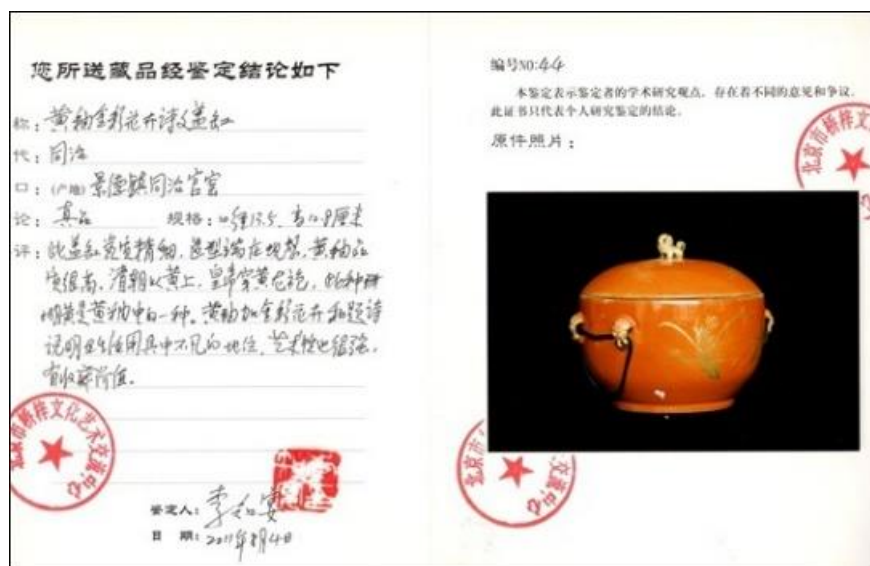 您所送藏品经鉴定结论如下
称：黄釉金彩花卉诗文盖缸
代：同治
口：(产地)景德镇同治官窑
论：真品 规格：口径13.5、高12.8厘米
评：此盖缸瓷质精细，造型端庄规整，黄釉品
质很高，清朝以黄上，皇帝穿黄龙袍，此种
黄是黄釉中的一种。黄釉加金彩花卉和题诗
说明生活用具中不凡的地位，艺术性也很强，
有收藏价值。
鉴定人：李知宴
日期：2011年8月4日
北京市桥梓文化艺术交流中心
编号NO:44
本鉴定表示鉴定者的学术研究观点，存在着不同的意见和争议，
此证书只代表个人研究鉴定的结论。
原件照片：
北京市桥梓
艺术交流中心